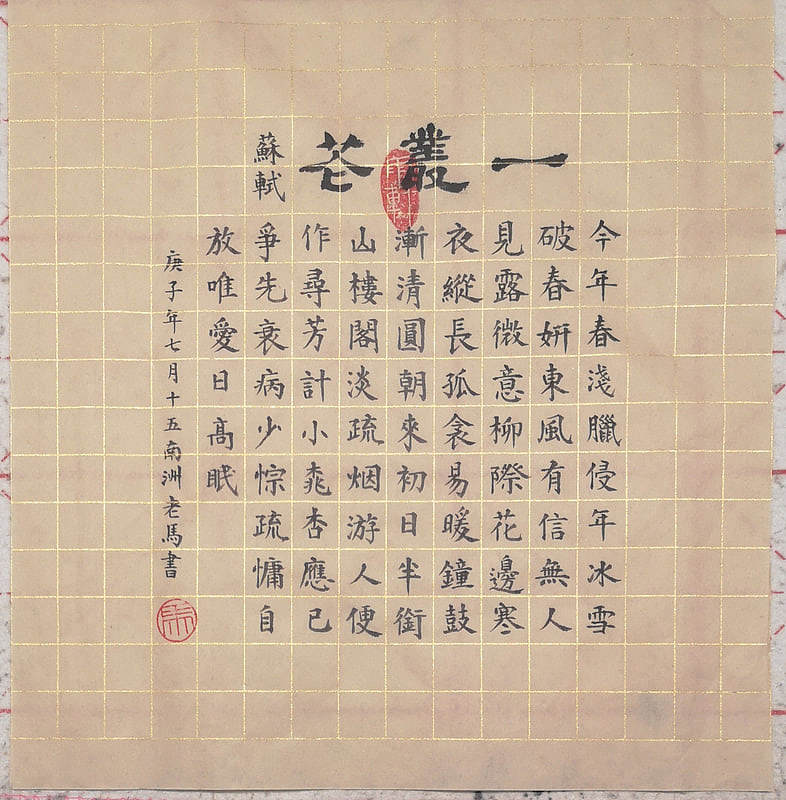 一叢花
蘇軾
今年春淺臘侵年冰雪
破春妍東風有信無人
見露微意柳際花邊寒
夜縱長孤衾易暖鐘鼓
漸清圓朝來初日半銜
山樓閣淡疏烟游人便
作尋芳計小桃杏應已
爭先衰病少悰疏慵自
放唯愛日高眠
庚子年七月十五南洲老馬書